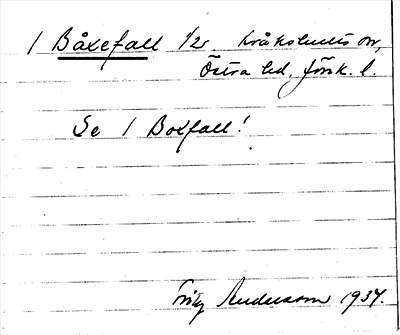 1 Båxefall 1/2. Kråkshults sn,
Östra hd, Jönk. l.
Se 1 Boxfall!
Fritz Andersson 1937.